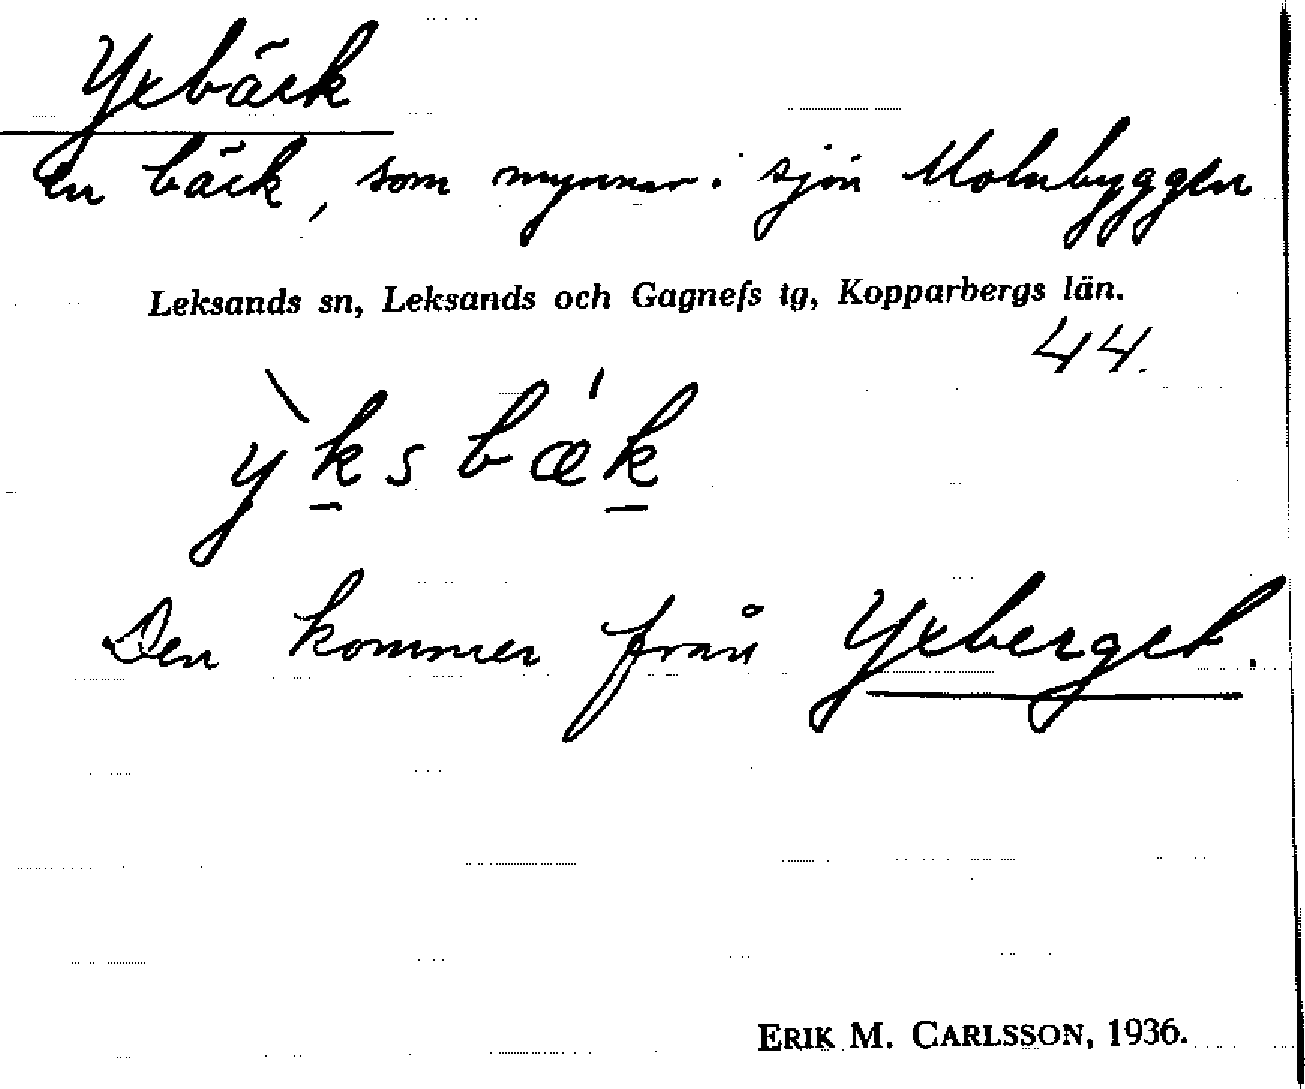 Yxbäck
En bäck, som mynnar i sjön Molnbyggen
Leksands sn, Leksands och Gagnefs tg, Kopparbergs län.
44.
ỳksbǽk
Den kommer från Yxberget.
ERIK M. CARLSSON, 1936.